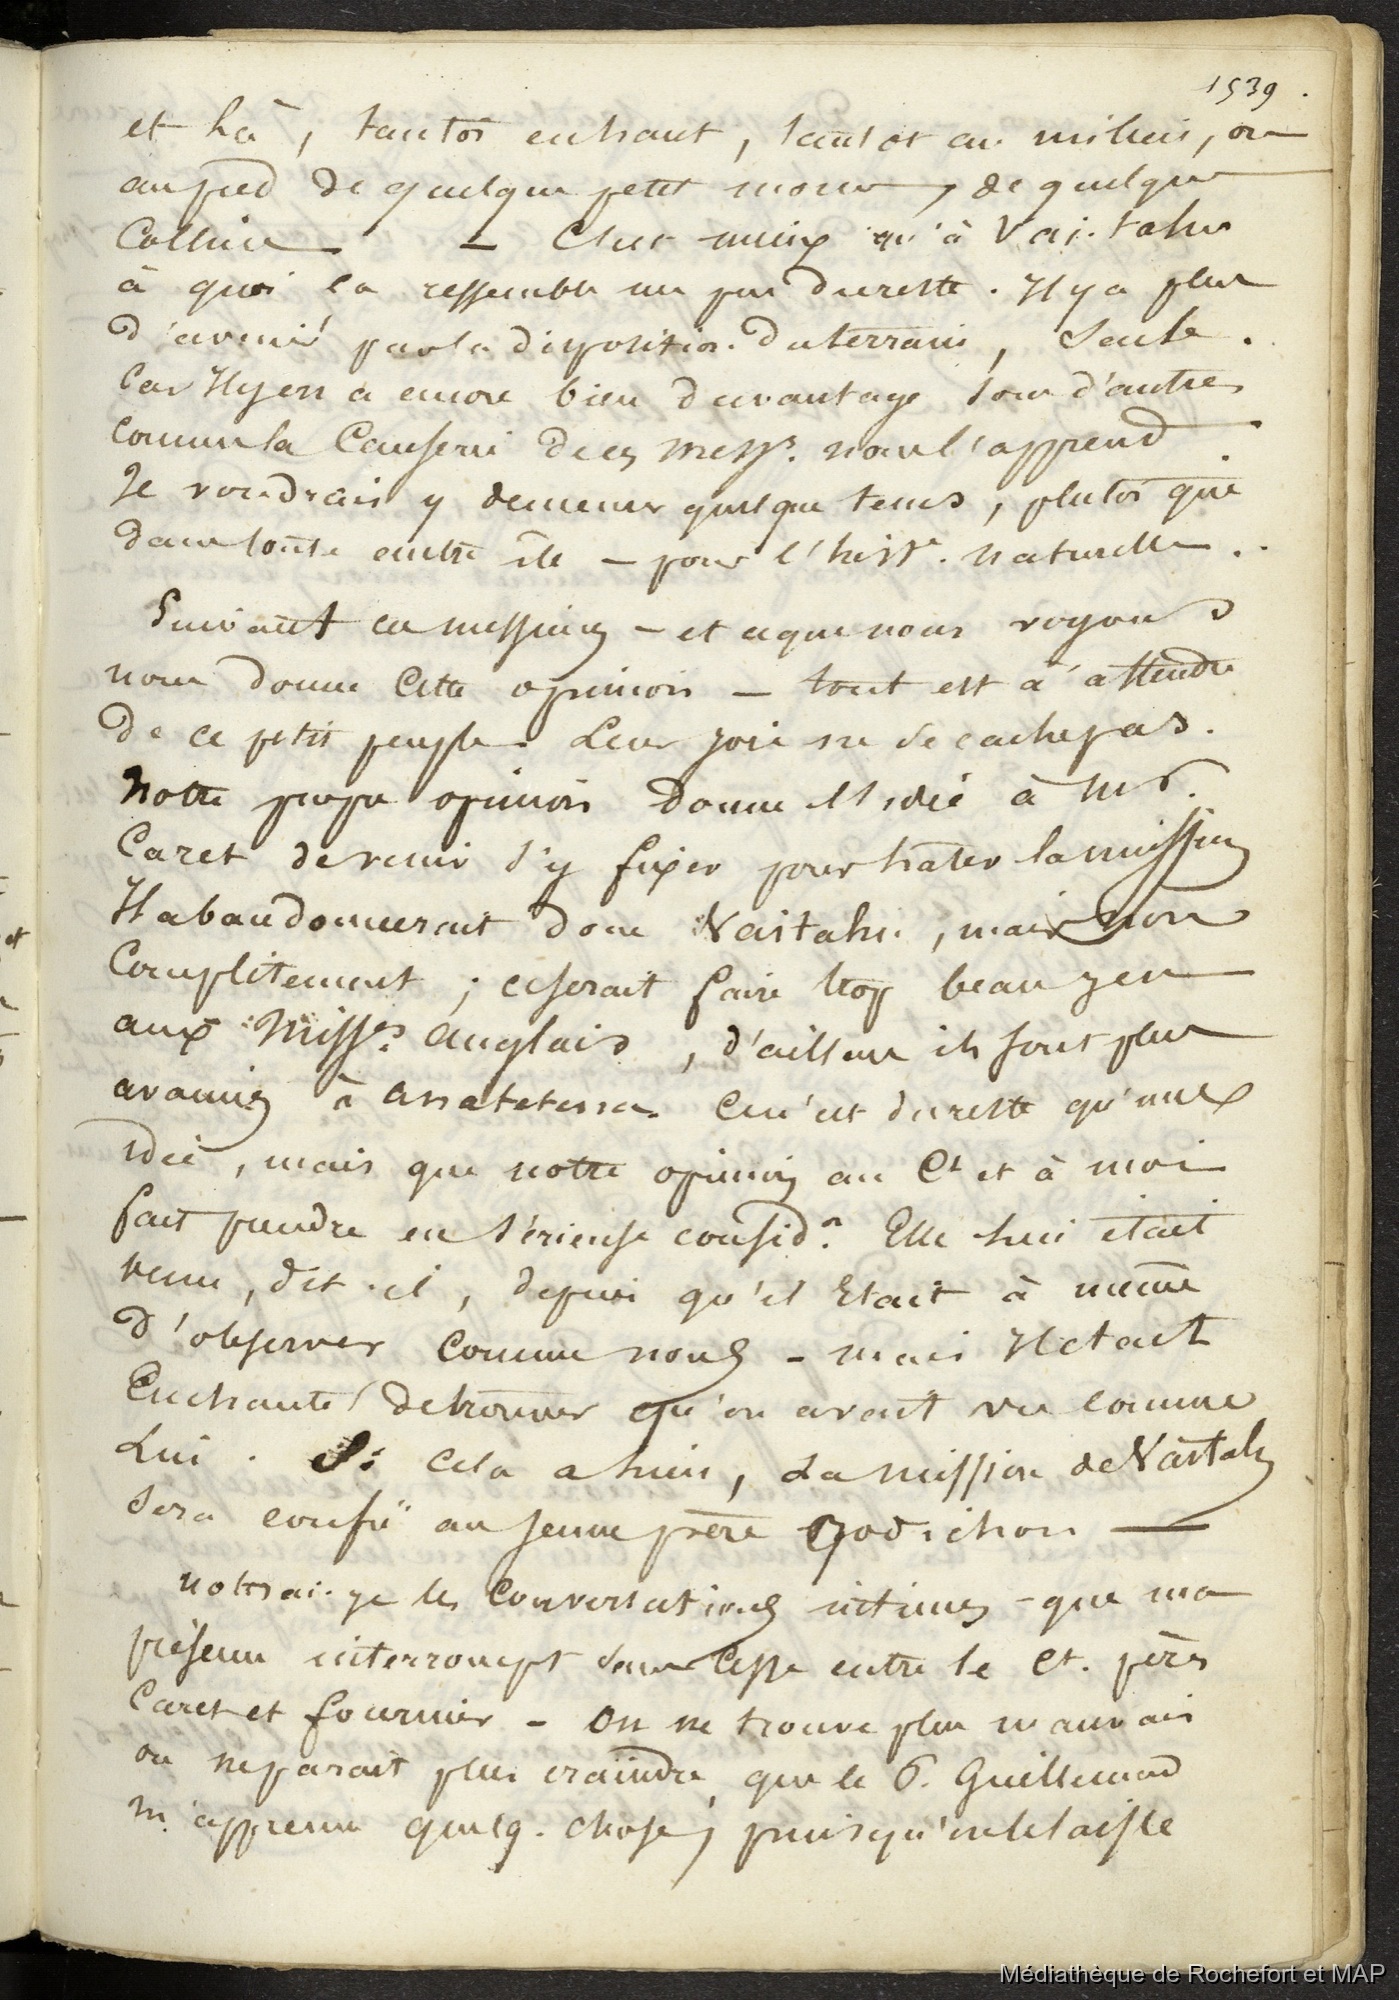 1539.
et là, tantôt en haut, tantôt au milieu, ou
au pied de quelque petit morne, de quelque
Colline — C'est mieux qu'à Vai-tahu
à quoi ca ressemble un peu du reste. Il y a plus
d'avenir par la disposition du terrain, seule.
Car Il y en a encore bien davantage sous d'autres
comme la Causerie de ces Messrs. nous l'apprend.
Je voudrais y demeurer quelque tems, plutôt que
dans toute autre île — pour l'histre. naturelle.
Suivant ces messieurs — et ce que nous voyons
nous donne cette opinion — tout est à attendre
de ce petit peuple. Leur joie ne se cache pas.
Notre propre opinion donne l'idée à Mr.
Caret de venir s'y fixer pour hâter la mission
Il abandonnerait donc Vaitahu, mais non
Complètement ; ce serait faire trop beau jeu
aux Missres anglais, d'ailleurs ils sont plus
avancés à anatetena. Ce n'est du reste qu'une
idée, mais que notre opinion au Ct et à moi
fait prendre en sérieuse considon. Elle lui était
venue, dit-il, depuis qu'il Etait à même
d'observer comme nous — mais Il était
Enchanté de trouver qu'on avait vu comme
Lui. Si cela a lieu, La mission de Vaitahu
sera confiée au jeune père Godichon —
noterai-je les Conversations intimes — que ma
présence interrompt sans Cesse entre le Ct. pères
Caret et fournier — On ne trouve plus mauvais
ou ne parait plus craindre, que le P. Guillemard
m'apprenne quelq. chose, puisqu'on le laisse
Médiathèque de Rochefort et MAP